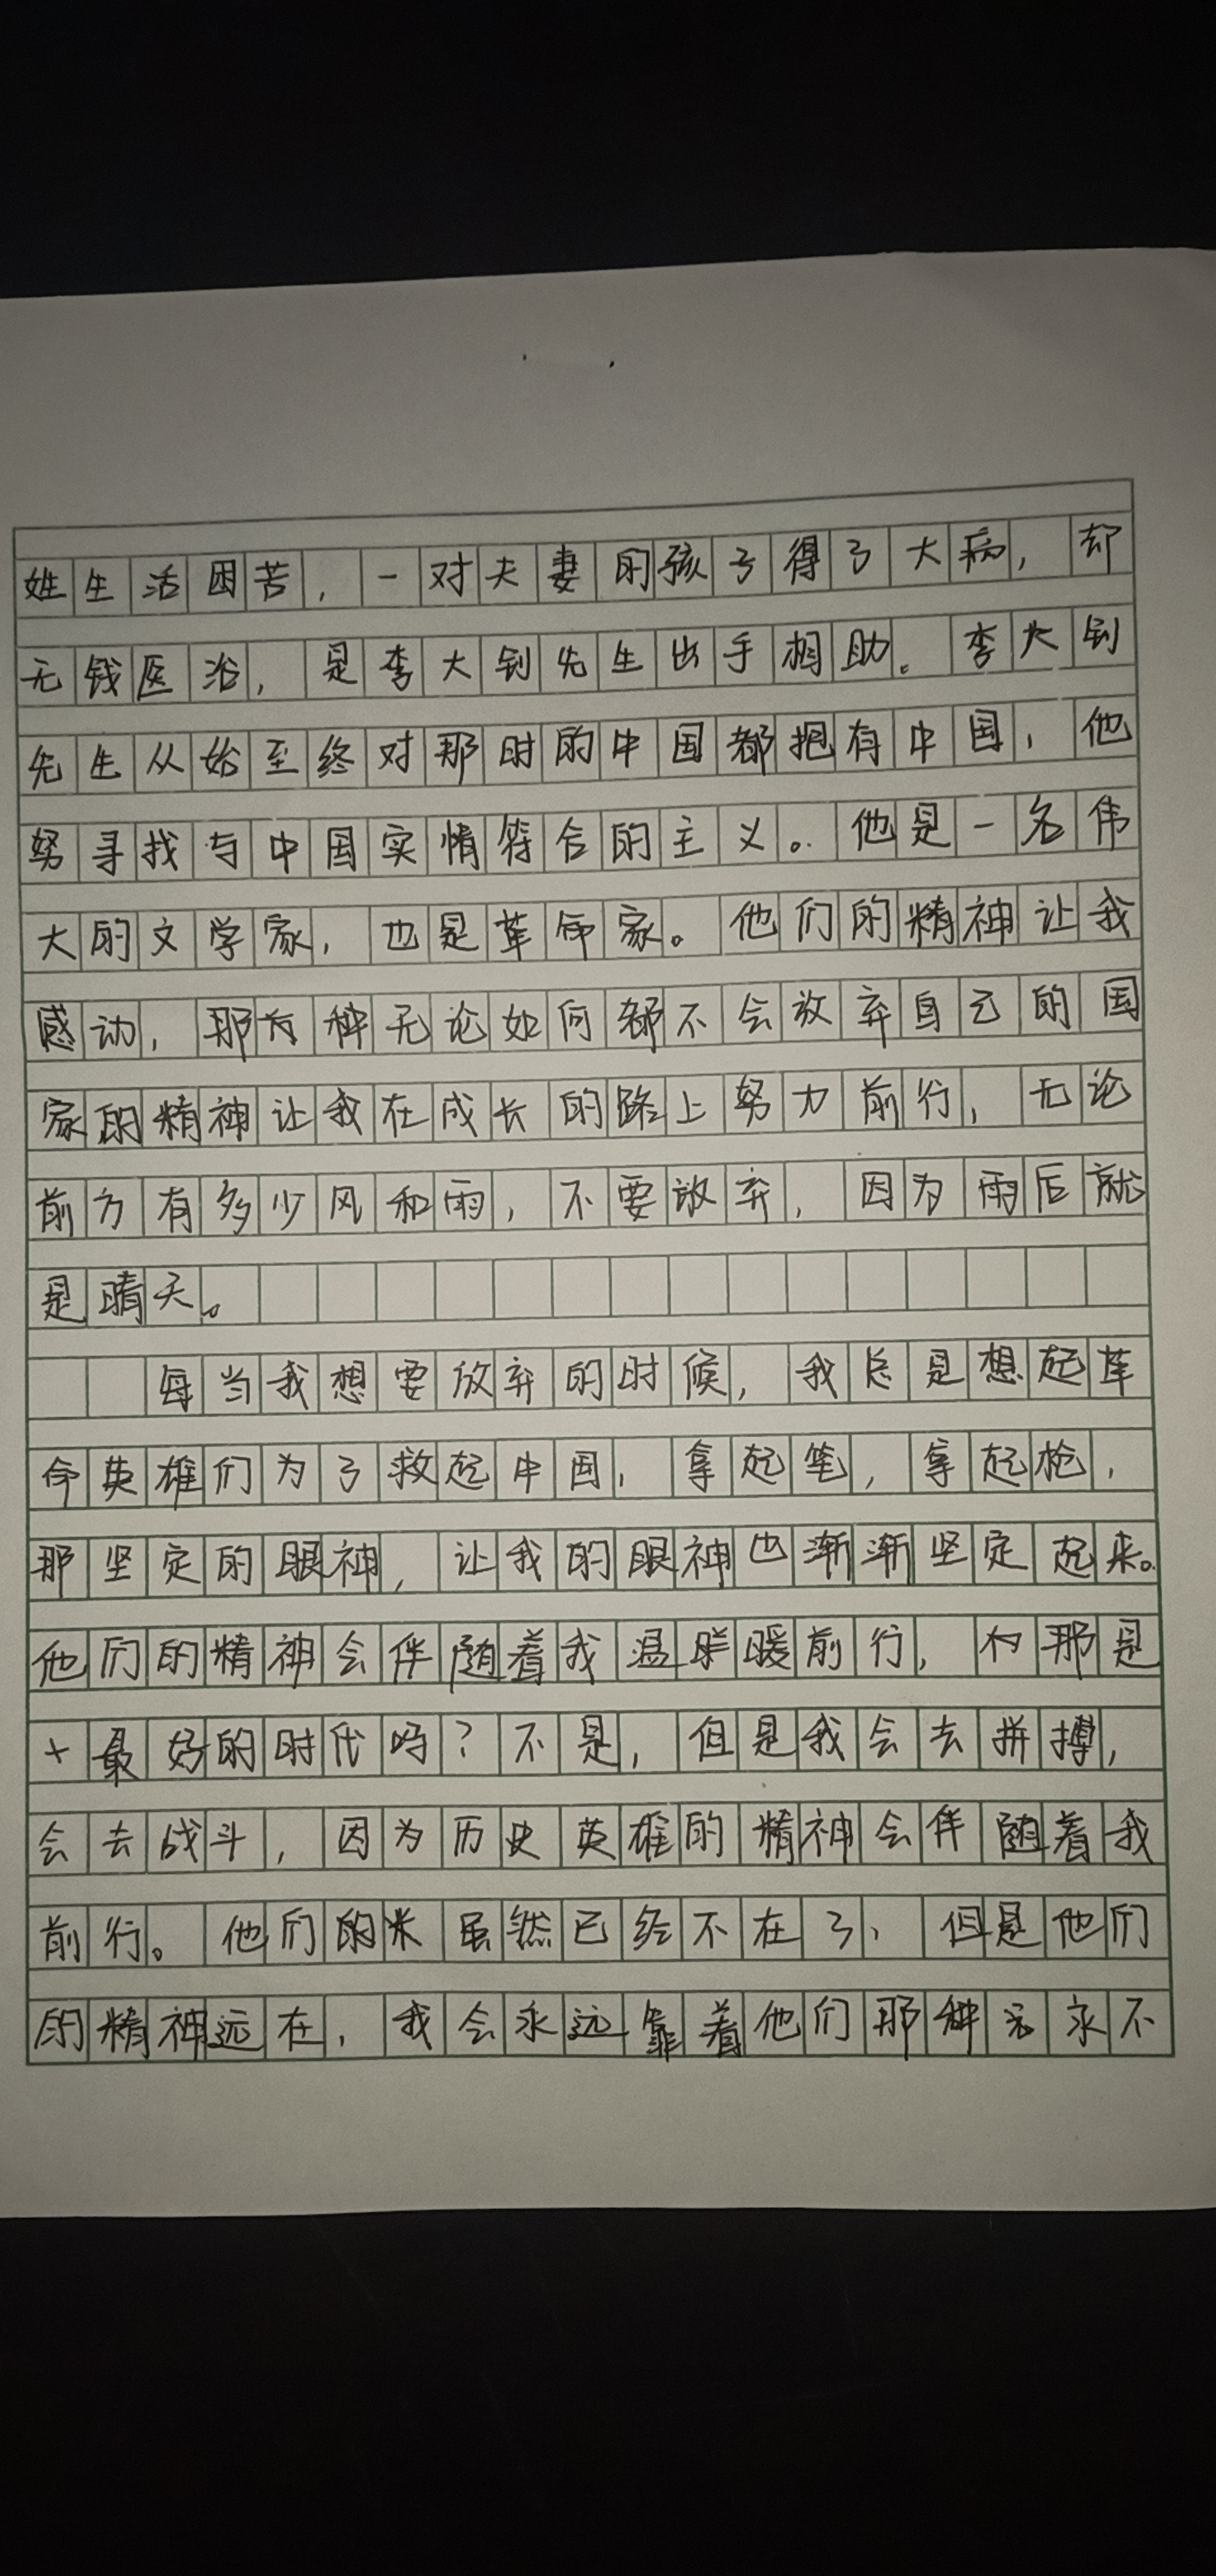 姓生活困苦，一对夫妻的孩子得了大病，却
无钱医治，是李大钊先生出手相助。李大钊
先生从始至终对那时的中国都抱有中国，他
努寻找与中国实情符合的主义。他是一名伟
大的文学家，也是革命家。他们的精神让我
感动，那种无论如何都不会放弃自己的国
家的精神让我在成长的路上努力前行，无论
前方有多少风和雨，不要放弃，因为雨后就
是晴天。
每当我想要放弃的时候，我总是想起革
命英雄们为了救起中国，拿起笔，拿起枪，
那坚定的眼神，让我的眼神也渐渐坚定起来。
他们的精神会伴随着我温暖前行，那是
最好的时代吗？不是，但是我会去拼搏，
会去战斗，因为历史英雄的精神会伴随着我
前行。他们的虽然已经不在了，但是他们
的精神远在，我会永远靠着他们那种永不